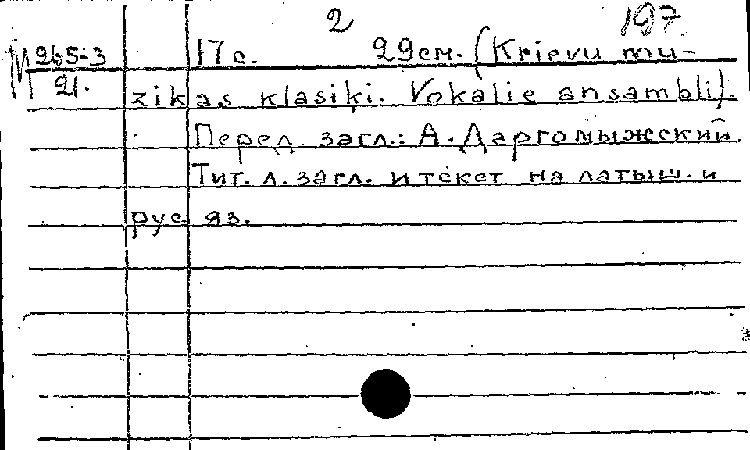 2 197
М 265-3 17 с. 29 см. (Krievu mu-
21. zikas klasiķi. Vokālie ansambļi).
Перед загл.: А. Даргомыжский
Тит. л. загл. и текст на латыш. и
рус яз.